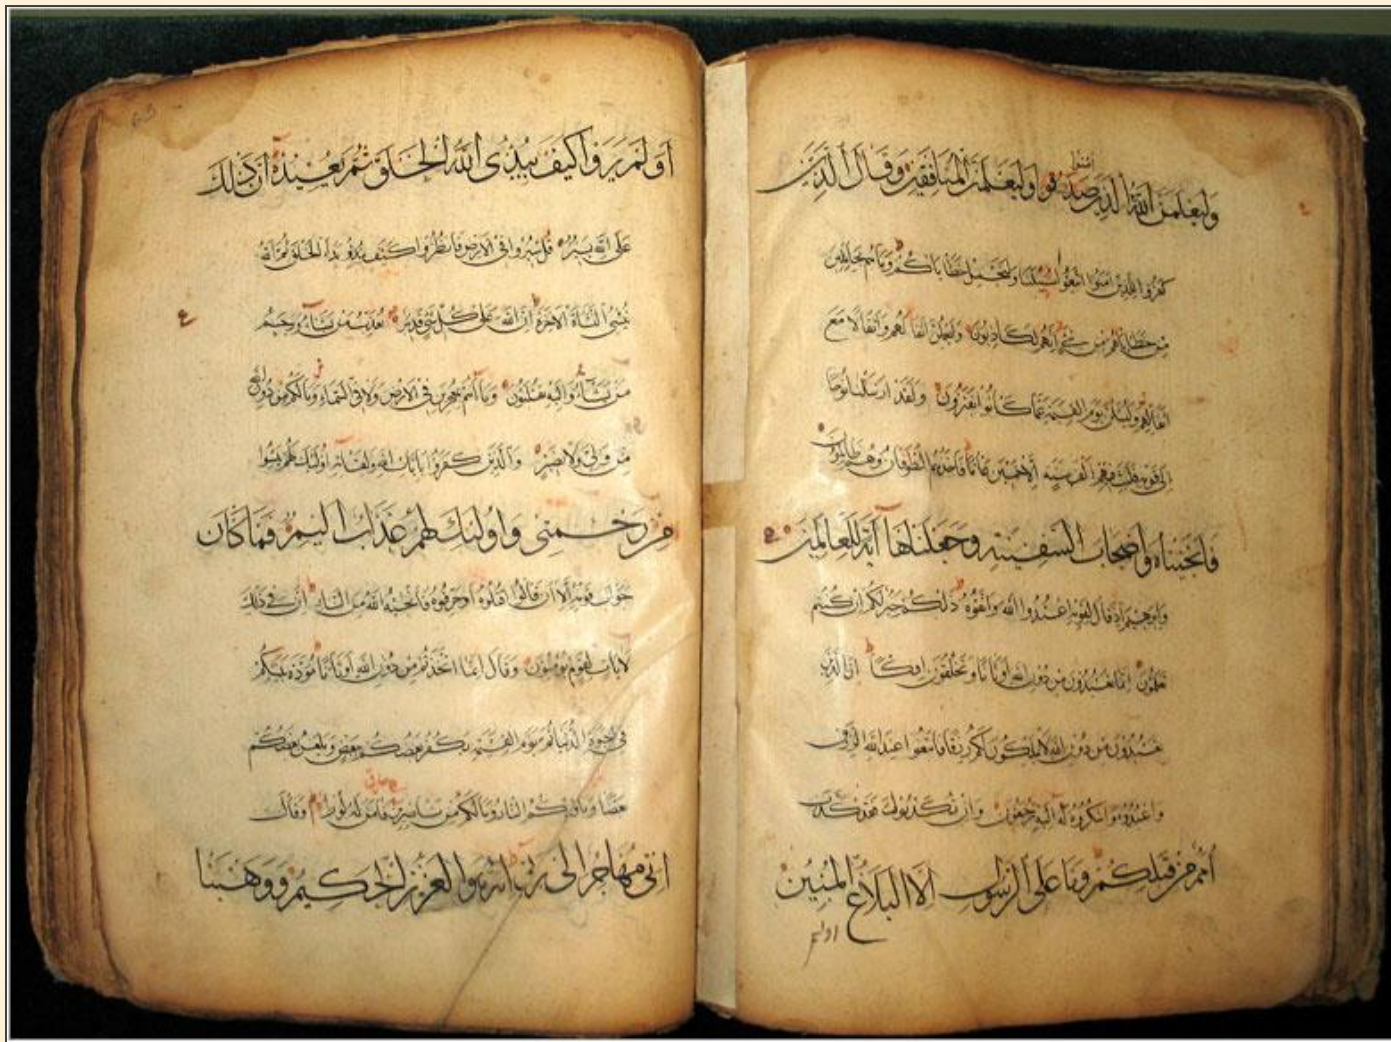 آمنوا
وليعلمن الله الذين صدقوا وليعلمن المنافقين وقال الذين
كفروا للذين امنوا اتبعوا سبيلنا ولنحمل خطاياكم وما هم بحاملين
من خطاياهم من شئ انهم لكاذبون وليحملن اثقالهم واثقالا مع
اثقالهم وليسئلن يوم القيمة عما كانوا يفترون ولقد ارسلنا نوحا
الى قومه فلبث فيهم الف سنة الا خمسين عاما فاخذهم الطوفان وهم ظالمون
فانجيناه واصحاب السفينة وجعلناها آية للعالمين
وابرهيم اذ قال لقومه اعبدوا الله واتقوه ذلكم خير لكم ان كنتم
تعلمون انما تعبدون من دون الله اوثانا وتخلقون افكا ان الذين
تعبدون من دون الله لا يملكون لكم رزقا فابتغوا عند الله الرزق
واعبدوه واشكروا له اليه ترجعون وان تكذبوا فقد كذب
امم من قبلكم وما على الرسول الا البلاغ المبين
اولم
اولم يروا كيف يبدئ الله الخلق ثم يعيده ان ذلك
على الله يسير قل سيروا فى الارض فانظروا كيف بدأ الخلق ثم الله
ينشئ النشأة الاخرة ان الله على كل شئ قدير يعذب من يشاء ويرحم
من يشاء واليه تقلبون وما انتم بمعجزين فى الارض ولا فى السماء وما لكم من دون الله
من ولى ولا نصير والذين كفروا بايات الله ولقائه اولئك يئسوا
من رحمتى واولئك لهم عذاب اليم فما كان
جواب قومه الا ان قالوا اقتلوه او حرقوه فانجيه الله من النار ان فى ذلك
لايات لقوم يؤمنون وقال انما اتخذتم من دون الله اوثانا مودة بينكم
فى الحيوة الدنيا ثم يوم القيمة يكفر بعضكم ببعض ويلعن بعضكم
بعضا وماويكم النار وما لكم من ناصرين فامن له لوط وقال
انى مهاجر الى ربى انه هو العزيز الحكيم ووهبنا